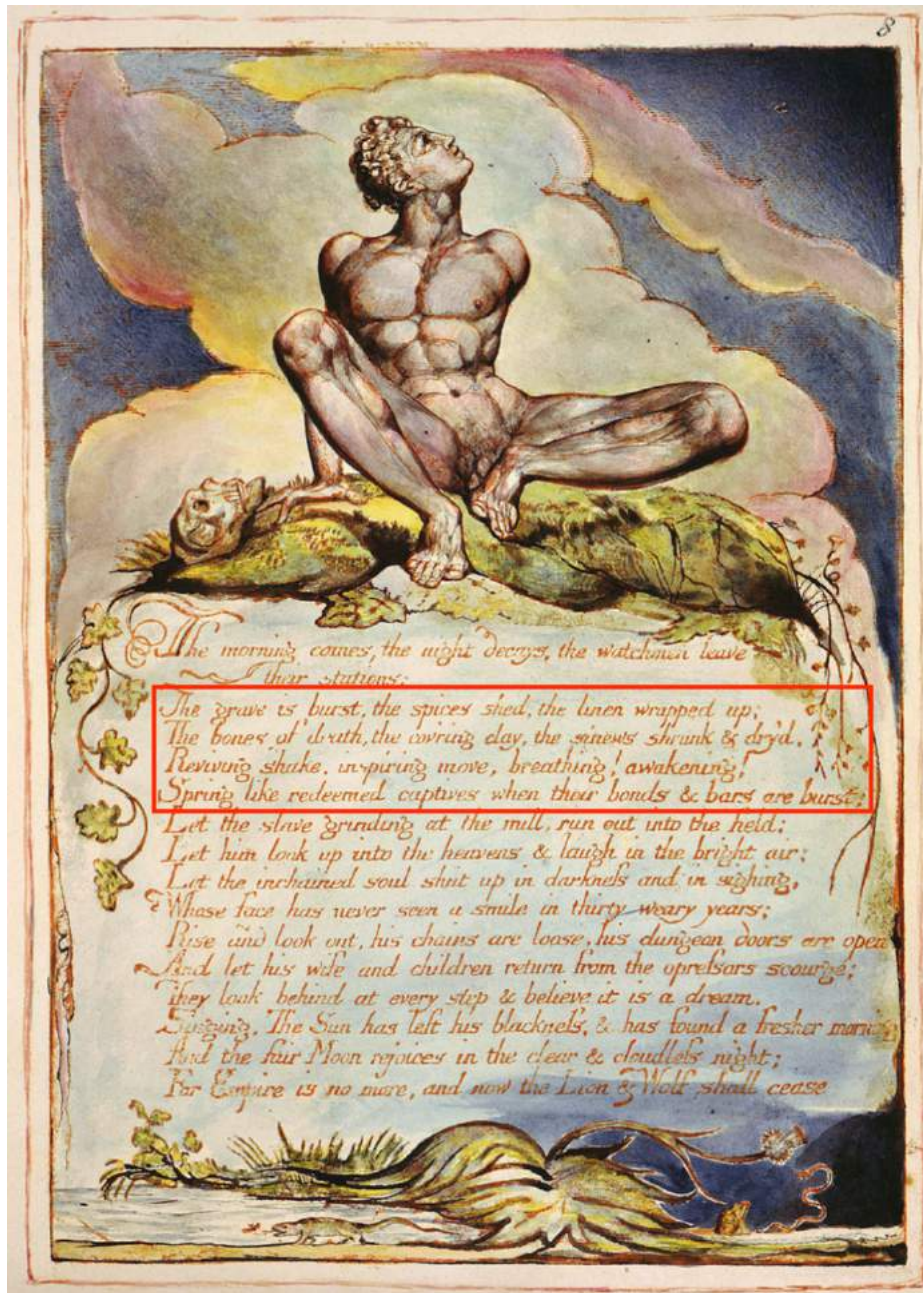 8
The morning comes, the night decays, the watchmen leave
their stations;
The grave is burst, the spices shed, the linen wrapped up;
The bones of death, the cov'ring clay, the sinews shrunk & dry'd.
Reviving shake, inspiring move, breathing! awakening!
Spring like redeemed captives when their bonds & bars are burst;
Let the slave grinding at the mill, run out into the field:
Let him look up into the heavens & laugh in the bright air;
Let the inchained soul shut up in darkneſs and in sighing,
Whose face has never seen a smile in thirty weary years;
Rise and look out, his chains are loose, his dungeon doors are open
And let his wife and children return from the opreſsors scourge;
They look behind at every step & believe it is a dream.
Singing. The Sun has left his blackneſs, & has found a fresher morning
And the fair Moon rejoices in the clear & cloudleſs night;
For Empire is no more, and now the Lion & Wolf shall cease